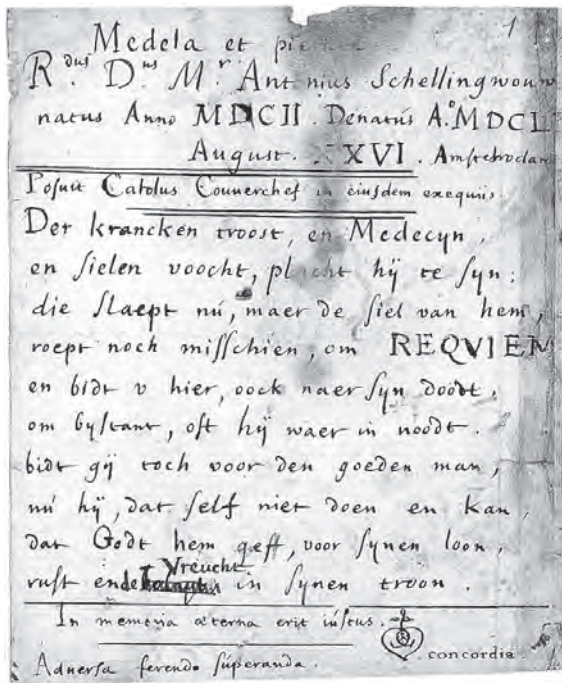 1
Medela et
R.dus D.ns M.r Antonius Schellingwouw
natus Anno MDCII. Denatus A.o MDCL
August. XXVI. Amstelrodam
Posuit Carolus Couuerchef in eiusdem exequiis.
Der krancken troost, en Medecyn,
en sielen voocht, placht hÿ te syn:
die slaept nú, maer de siel van hem,
roept noch misschien, om REQVIEM
en bidt v hier, oock naer syn doodt,
om bystant, oft hÿ waer in noodt.
bidt gÿ toch voor den goeden man,
nú hÿ, dat self niet doen en kan,
dat Godt hem geff, voor synen loon,
rust ende Vreucht in synen troon.
In memoria æterna erit iústus.
concordia.
Aduersa ferendo súperanda.